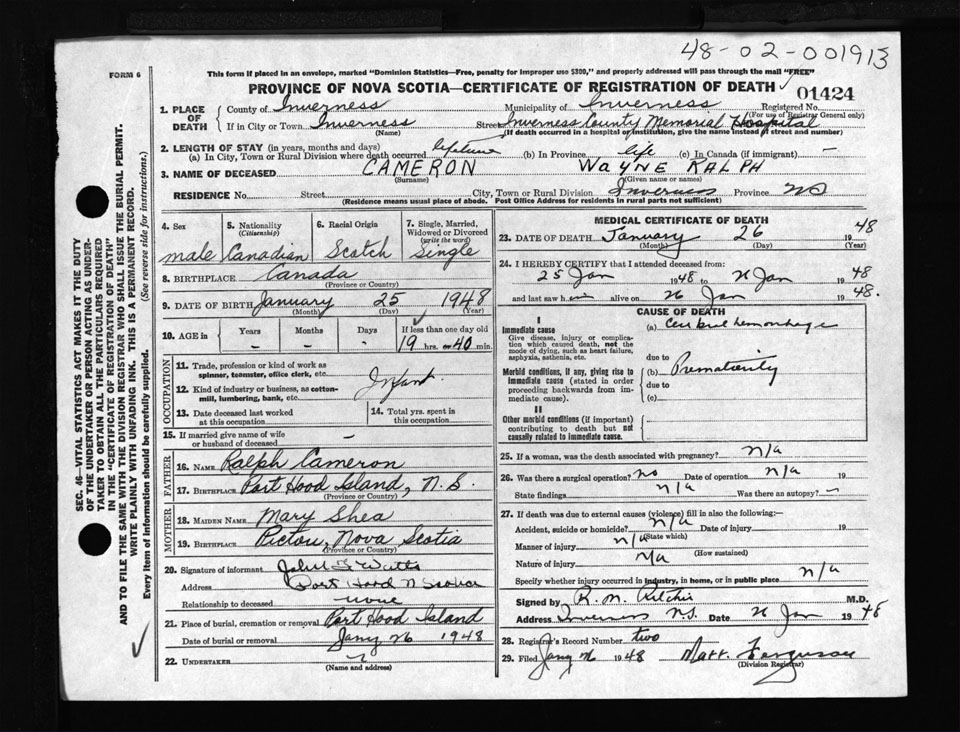 48-02-001913
FORM 6
This form if placed in an envelope, marked "Dominion Statistics—Free, penalty for improper use $300," and properly addressed will pass through the mail "FREE"
PROVINCE OF NOVA SCOTIA—CERTIFICATE OF REGISTRATION OF DEATH
01424
1. PLACE OF DEATH
County of Inverness Municipality of Inverness Registered No.
(For use of Registrar General only)
If in City or Town Inverness Street Inverness County Memorial Hospital
(Name) (If death occurred in a hospital or institution, give the name instead of street and number)
2. LENGTH OF STAY (in years, months and days)
(a) In City, Town or Rural Division where death occurred lifetime (b) In Province life (c) In Canada (if immigrant) —
3. NAME OF DECEASED CAMERON WAYNE RALPH
(Surname) (Given name or names)
RESIDENCE No. Street City, Town or Rural Division Inverness Province NS
(Residence means usual place of abode. Post Office Address for residents in rural parts not sufficient)
4. Sex 5. Nationality (Citizenship) 6. Racial Origin 7. Single, Married, Widowed or Divorced (write the word)
male Canadian Scotch Single
8. BIRTHPLACE Canada
(Province or Country)
9. DATE OF BIRTH January 25 1948
(Month) (Day) (Year)
10. AGE in Years Months Days If less than one day old
— — — 19 hrs. or 40 min.
OCCUPATION
11. Trade, profession or kind of work as spinner, teamster, office clerk, etc.
12. Kind of industry or business, as cotton-mill, lumbering, bank, etc.
Infant
13. Date deceased last worked at this occupation
14. Total yrs. spent in this occupation
15. If married give name of wife or husband of deceased —
FATHER
16. NAME Ralph Cameron
17. BIRTHPLACE Port Hood Island, N.S.
(Province or Country)
MOTHER
18. MAIDEN NAME Mary Shea
19. BIRTHPLACE Pictou, Nova Scotia
(Province or Country)
20. Signature of informant John S Watts
Address Port Hood N Scotia
Relationship to deceased none
21. Place of burial, cremation or removal Port Hood Island
Date of burial or removal Jany 26 1948
22. UNDERTAKER
(Name and address)
MEDICAL CERTIFICATE OF DEATH
23. DATE OF DEATH January 26 1948
(Month) (Day) (Year)
24. I HEREBY CERTIFY that I attended deceased from:
25 Jan 1948 to 26 Jan 1948
and last saw him alive on 26 Jan 1948.
CAUSE OF DEATH
I
Immediate cause
Give disease, injury or complication which caused death, not the mode of dying, such as heart failure, asphyxia, asthenia, etc.
(a) Cerebral hemorrhage
due to
Morbid conditions, if any, giving rise to immediate cause (stated in order proceeding backwards from immediate cause).
(b) Prematurity
due to
(c)
II
Other morbid conditions (if important) contributing to death but not causally related to immediate cause.
25. If a woman, was the death associated with pregnancy? n/a
26. Was there a surgical operation? no Date of operation n/a 19
State findings n/a Was there an autopsy? —
27. If death was due to external causes (violence) fill in also the following:—
Accident, suicide or homicide? n/a Date of injury 19
(State which)
Manner of injury n/a
(How sustained)
Nature of injury n/a
Specify whether injury occurred in industry, in home, or in public place n/a
Signed by R. M. Ritchie M.D.
Address Inverness N.S. Date 26 Jan 1948
28. Registrar's Record Number two
29. Filed Jany 26 1948 Matt. Ferguson
(Division Registrar)
SEC. 46—VITAL STATISTICS ACT MAKES IT THE DUTY
OF THE UNDERTAKER OR PERSON ACTING AS UNDER-
TAKER TO OBTAIN ALL THE PARTICULARS REQUIRED
IN THE "CERTIFICATE OF REGISTRATION OF DEATH"
AND TO FILE THE SAME WITH THE DIVISION REGISTRAR WHO SHALL ISSUE THE BURIAL PERMIT.
WRITE PLAINLY WITH UNFADING INK. THIS IS A PERMANENT RECORD.
Every item of information should be carefully supplied. (See reverse side for instructions.)